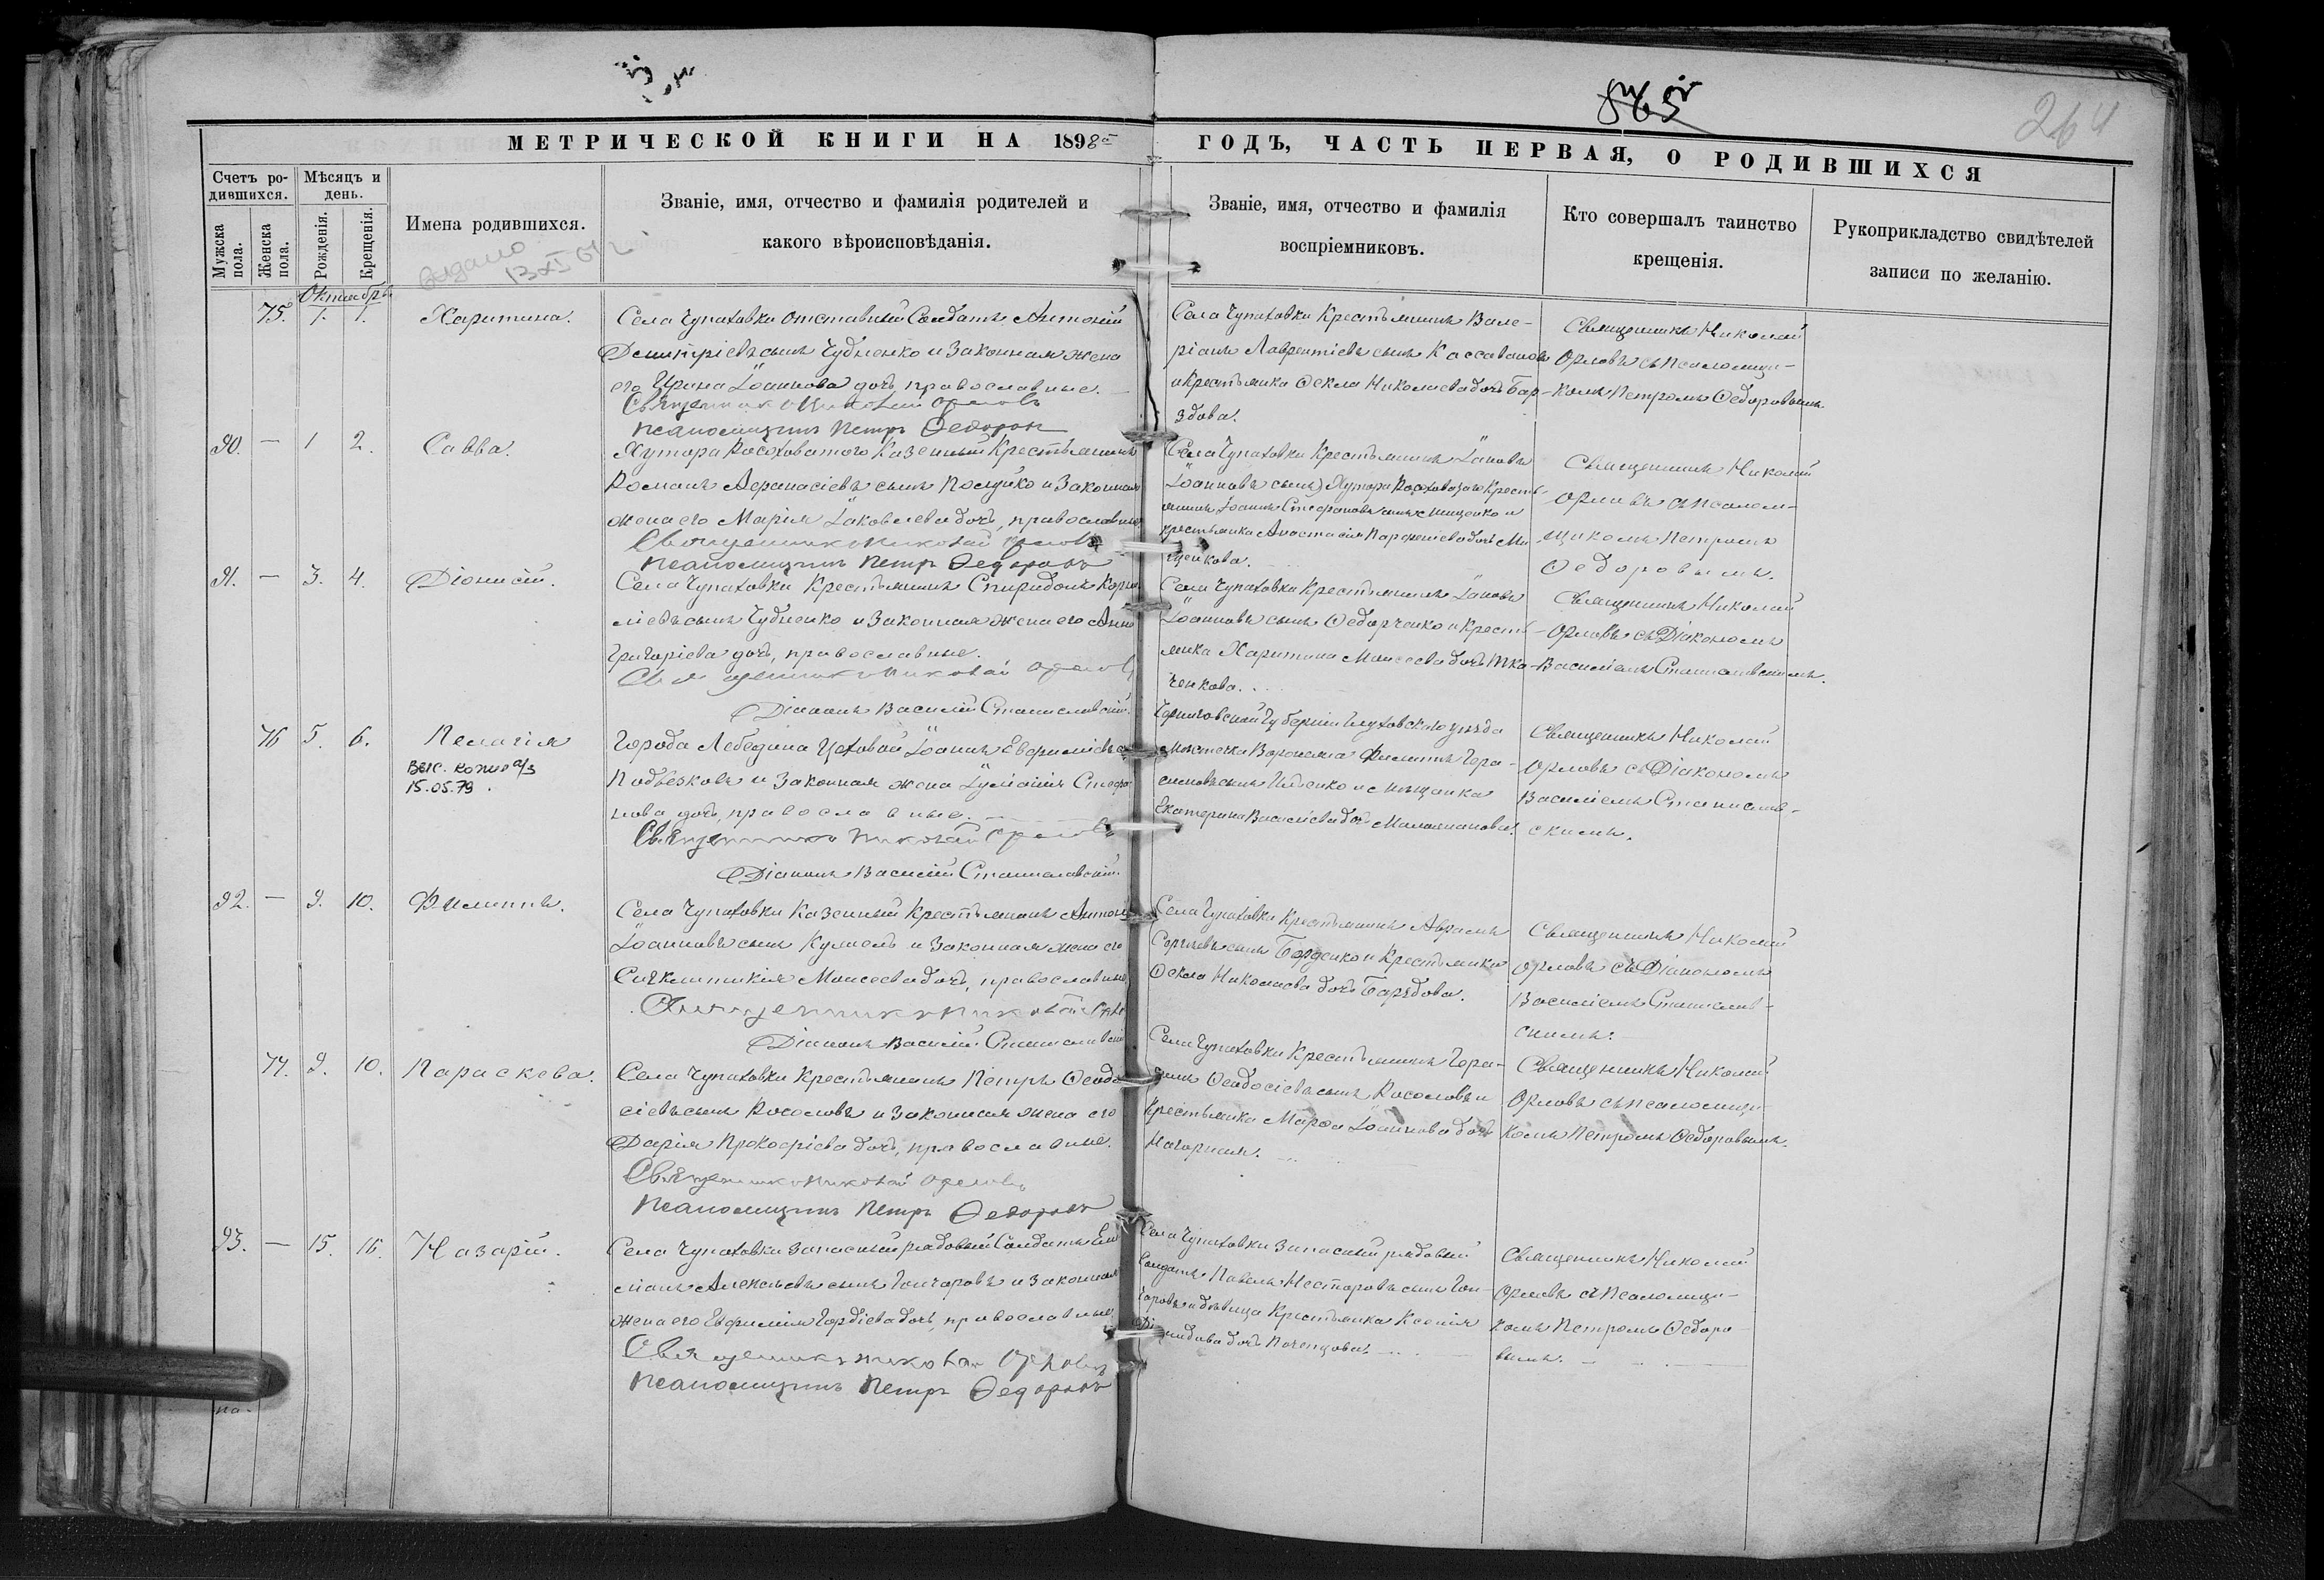 264
МЕТРИЧЕСКОЙ КНИГИ НА 1898й
ГОДЪ, ЧАСТЬ ПЕРВАЯ, О РОДИВШИХСЯ
Счетъ ро-
дившихся.
Мужска
пола.
Женска
пола.
Мѣсяцъ и
день.
Рожденія.
Крещенія.
Имена родившихся.
Званіе, имя, отчество и фамилія родителей и
какого вѣроисповѣданія.
Званіе, имя, отчество и фамилія
воспріемниковъ.
Кто совершалъ таинство
крещенія.
Рукоприкладство свидѣтелей
записи по желанію.
Октября
75. 1. 1. Харитина.
Села Чупаховки отставный Солдатъ Антоній
Димитріевъ сынъ Чудненко и законная жена
его Ирина Іоаннова дочь, православные.
Священникъ Николай Орловъ
Псаломщикъ Петръ Федоровъ
Села Чупаховки Крестьянинъ Вале-
ріанъ Лаврентіевъ сынъ
и Крестьянка Ѳекла Николаева дочь Бар-
здова.
Священникъ Николай
Орловъ съ Псаломщи-
комъ Петромъ Ѳедоровымъ.
90. — 1 2. Савва.
Хутора Казенный Крестьянинъ
Романъ Аѳанасіевъ сынъ и законная
жена его Марія Іаковлева дочь, православные.
Священникъ Николай Орловъ
Псаломщикъ Петръ Федоровъ
Села Чупаховки Крестьянинъ Іаковъ
Іоанновъ сынъ Хутора Кресть-
янинъ Іоаннъ Стефановъ сынъ и
крестьянка Анастасія Парѳеніева дочь Ми-
щенкова.
Священникъ Николай
Орловъ съ Псалом-
щикомъ Петромъ
Ѳедоровымъ.
91. — 3. 4. Діонисій.
Села Чупаховки Крестьянинъ Спиридонъ Корни-
ліевъ сынъ Чудненко и законная жена его Анна
Григоріева дочь, православные.
Священникъ Николай Орловъ
Діаконъ Василій Станиславскій.
Села Чупаховки Крестьянинъ Іаковъ
Іоанновъ сынъ Ѳедорченко и Кресть-
янка Харитина Моисеева дочь Тка-
ченкова.
Священникъ Николай
Орловъ съ Діакономъ
Василіемъ Станиславскимъ.
76 5. 6. Пелагія
Выс. копия а/з
15.05.79.
Города Лебедина Цеховой Іоаннъ Евфиміевъ с.
Подвезковъ и законная жена Іуліанія Стефа-
нова дочь, православные.
Священникъ Николай Орловъ
Діаконъ Василій Станиславскій.
Черниговской Губерніи Глуховскаго уѣзда
мѣстечка Воронежа Филиппъ Гера-
симовъ сынъ и мѣщанка
Екатерина Василіева дочь
Священникъ Николай
Орловъ съ Діакономъ
Василіемъ Станислав-
скимъ.
92. — 9. 10. Филиппъ.
Села Чупаховки Казенный Крестьянинъ Антоній
Іоанновъ сынъ и законная жена его
Синклитикія Моисеева дочь, православные.
Священникъ Николай Орловъ
Діаконъ Василій Станиславскій
Села Чупаховки Крестьянинъ Аврамъ
Сергіевъ сынъ и Крестьянка
Ѳекла Николаева дочь Барздова.
Священникъ Николай
Орловъ съ Діакономъ
Василіемъ Станислав-
скимъ.
77. 9. 10. Параскева.
Села Чупаховки Крестьянинъ Петръ Ѳеодо-
сіевъ сынъ Косоловъ и законная жена его
Дарія Прокофіева дочь, православные.
Священникъ Николай Орловъ
Псаломщикъ Петръ Федоровъ
Села Чупаховки Крестьянинъ Гера-
симъ Ѳеодосіевъ сынъ Косоловъ и
Крестьянка Марѳа Іоаннова дочь
Нагорная.
Священникъ Николай
Орловъ съ Псаломщи-
комъ Петромъ Ѳедоровымъ.
93. — 15. 16. Назарій.
Села Чупаховки запасный рядовый Солдатъ Еми-
ліанъ Алексѣевъ сынъ Гончаровъ и законная
жена его Евфимія Гордіева дочь, православные.
Священникъ Николай Орловъ
Псаломщикъ Петръ Федоровъ
Села Чупаховки Запасный рядовый
Солдатъ Павелъ Несторовъ сынъ Гон-
чаровъ и дѣвица Крестьянка Ксенія
дочь
Священникъ Николай
Орловъ съ Псаломщи-
комъ Петромъ Ѳедоро-
вымъ.